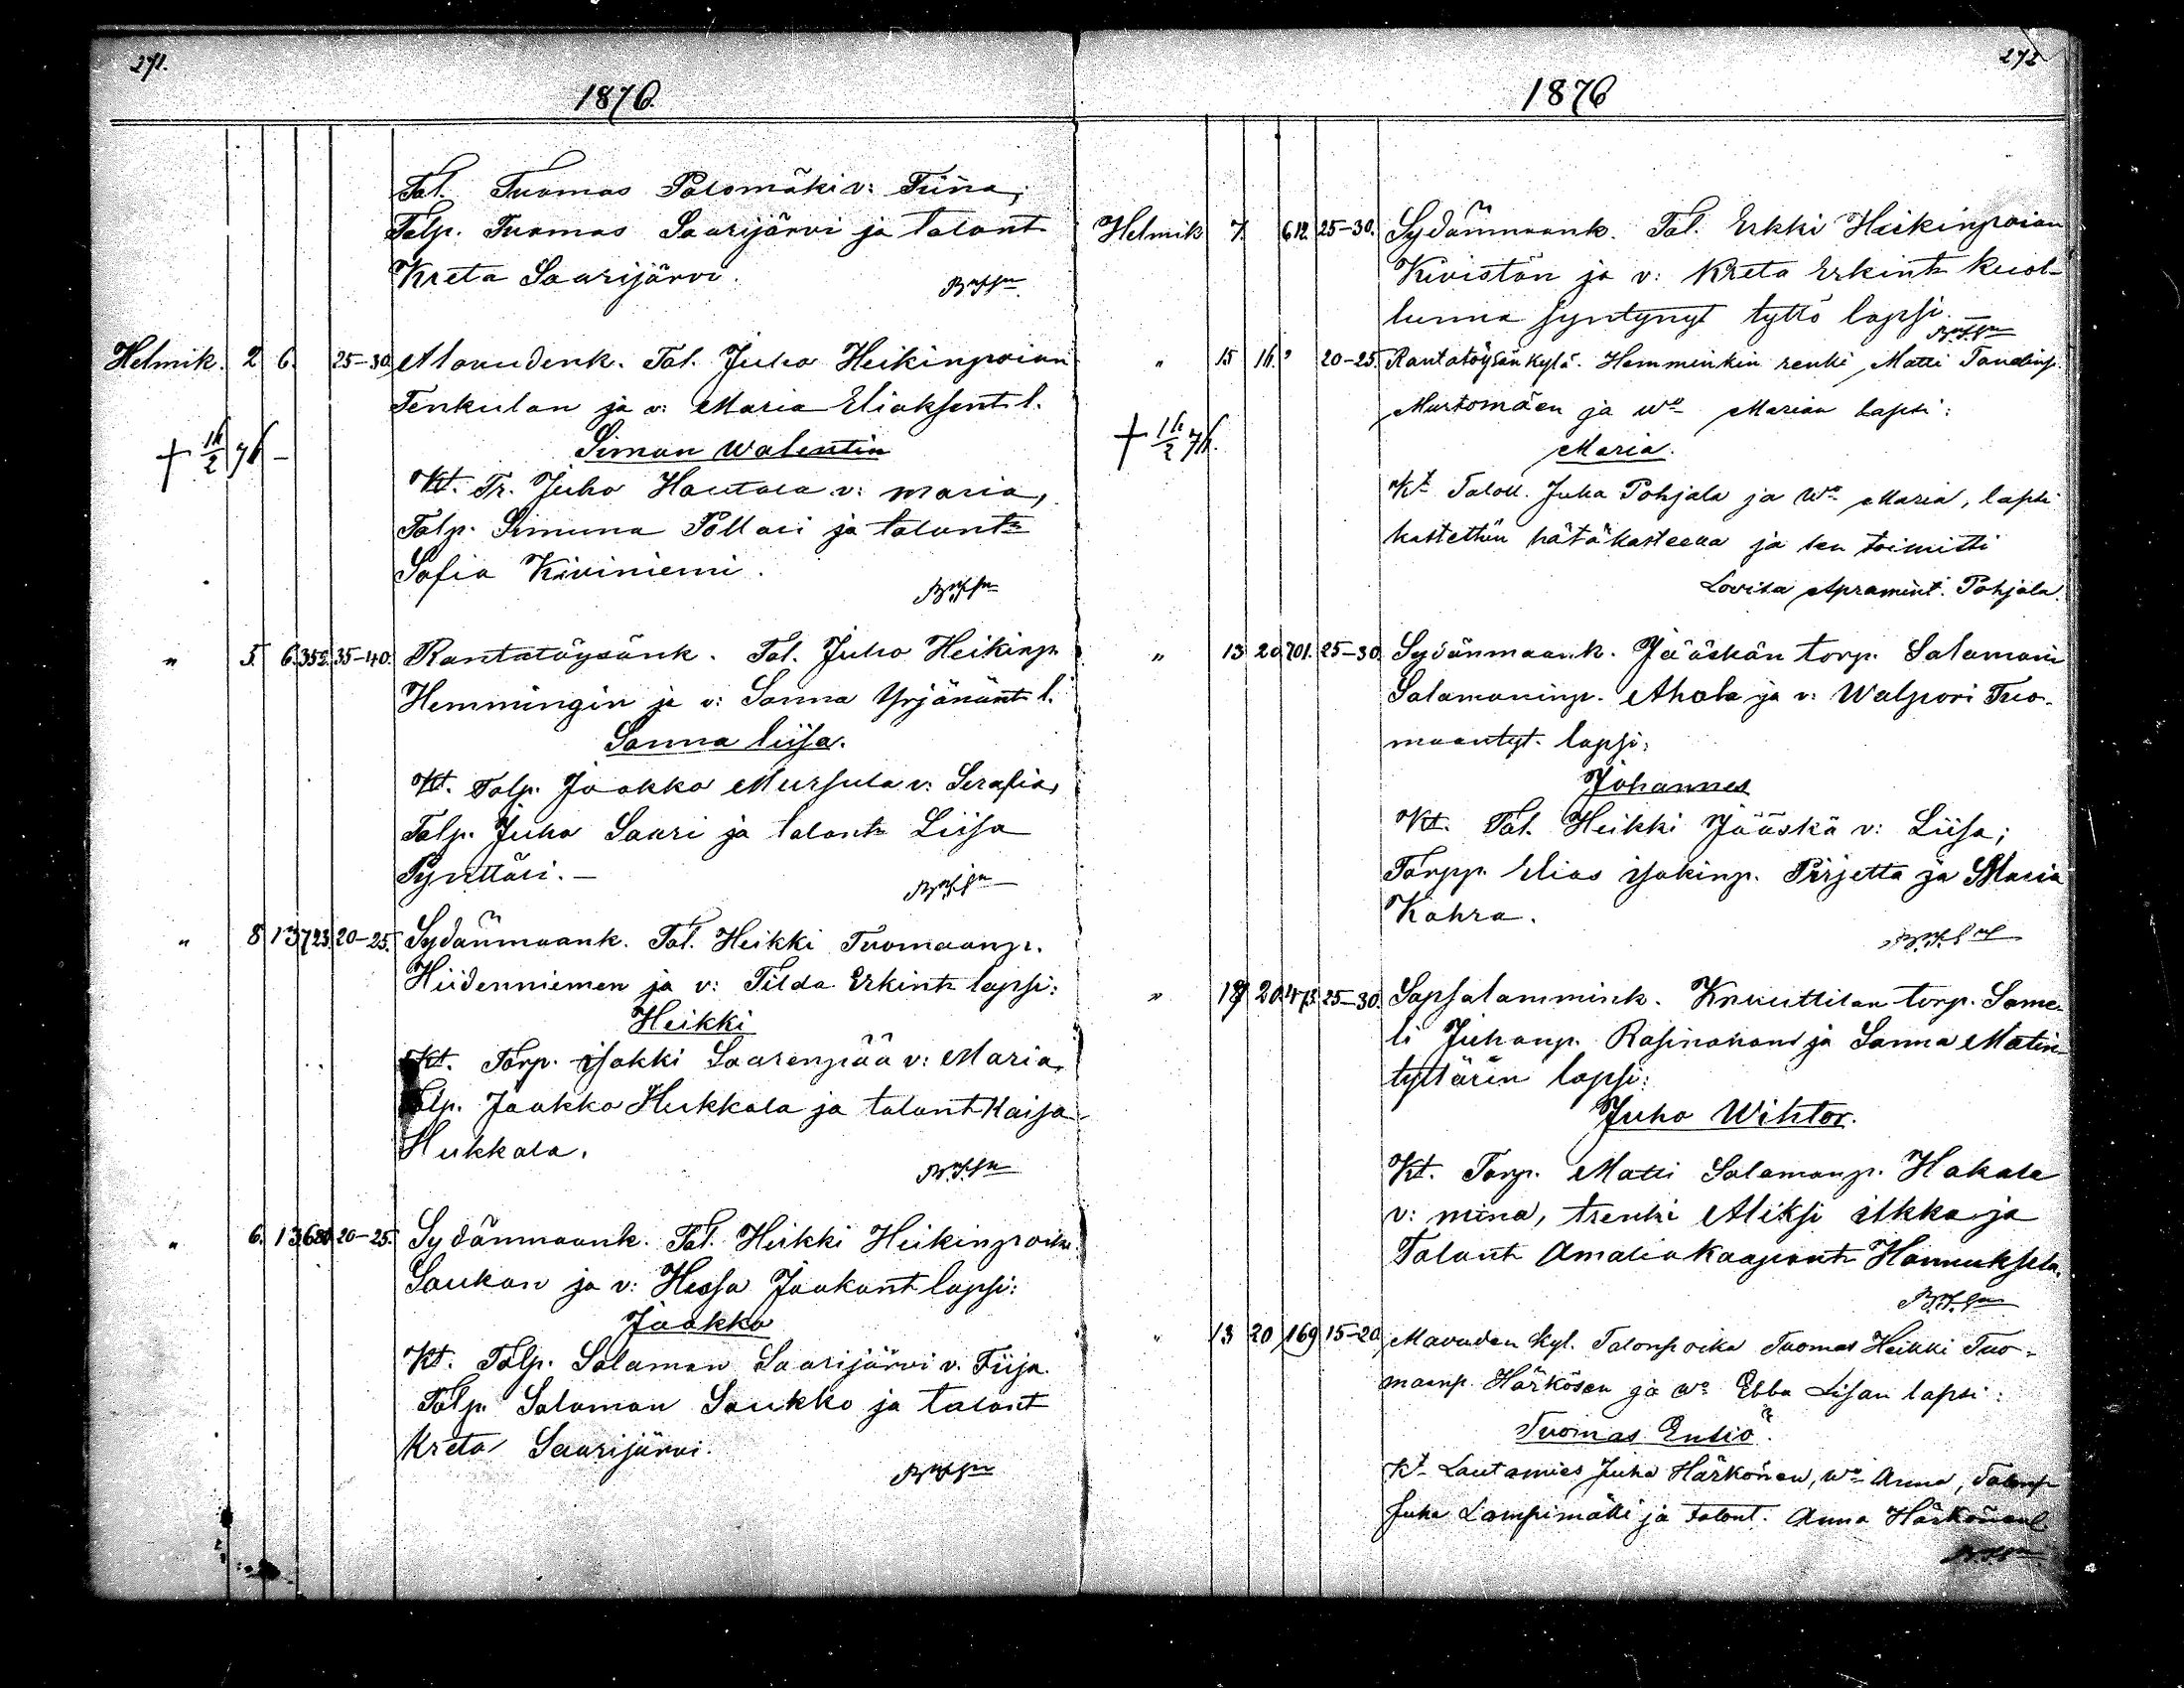 271.
1876.
Tal. Tuomas Palomäki v: Tiina,
Talp. Tuomas Saarijärvi ja talont
Kreta Saarijärvi.
Helmik. 2 6. 25-30. Alavudenk. Tal. Juho Heikinpoian
Tenkulan ja v: Maria Eliaksent l.
Simon Walentin
+ 16/2 76 -
Kt. Tr. Juho Hautala v: Maria,
Talp. Simuna Pollari ja talont
Sofia Kiviniemi.
" 5. 6. 355. 35-40. Rantatöysänk. Tal. Juho Heikinp
Hemmingin ja v: Sanna Yrjänänt l.
Sanna Liisa.
Kt. Talp. Jaakko Mursula v: Serafia,
Talp. Juho Saari ja talont Liisa
Pynttäri. -
" 8 13 723. 20-25. Sydänmaank. Tal. Heikki Tuomaanp.
Hiidenniemen ja v: Tilda Erkint lapsi:
Heikki
Kt. Torp. Isakki Saarenpää v: Maria,
Talp. Jaakko Hukkala ja talont Kaisa
Hukkala.
" 6. 13 680. 20-25. Sydänmaank. Tal. Heikki Heikinpoika
Saukon ja v: Hessa Jaakont lapsi:
Jaakko
Kt. Talp. Salamon Saarijärvi v. Fiija
Talp. Salamon Saukko ja talont
Kreta Saarijärvi.
272
1876
Helmik 7. 612. 25-30. Sydänmaank. Tal. Erkki Heikinpoian
Kivistön ja v: Kreta Erkint kuol-
lunna syntynyt tyttö lapsi.
" 15 16. " 20-25. Rantatöysän kylä. Hemminkin renki Matti Tanelinp.
Murtomäen ja wo Marian lapsi:
Maria.
+ 16/2 76.
Kt Taloll. Juha Pohjala ja wo Maria, lapsi
kastettiin hätäkasteena ja sen toimitti
Lovisa Apramint. Pohjala.
" 13 20 701. 25-30 Sydänmaank. Jääskän torp. Salamoni
Salamoninp. Ahola ja v: Walpori Tuo-
maantyt. lapsi:
Johannes
Kt. Tal. Heikki Jääskä v: Liisa;
Torpp. Elias Isakinp. Pirjetta ja Maria
Kahra.
" 17 20 473. 25-30. Sapsalammink. Knuuttilan torp. Same-
li Juhanp. Rasinahon ja Sanna Matin-
tyttärin lapsi:
Juho Wihtor.
Kt. Torp. Matti Salamonp. Hakala
v: Mina, trenki Aliksi Ilkka ja
Talont Amalia Kaapont Hannuksela.
" 13 20 169 15-20 Alavuden kyl. Talonpoika Tuomas Heikki Tuo-
maanp. Härkösen ja wo Ebba Lisan lapsi:
Tuomas Entiö.
Kt Lautamies Juha Härkönen, wo Anna, Talonp
Juha Lampimäki ja talont. Anna Härkönen